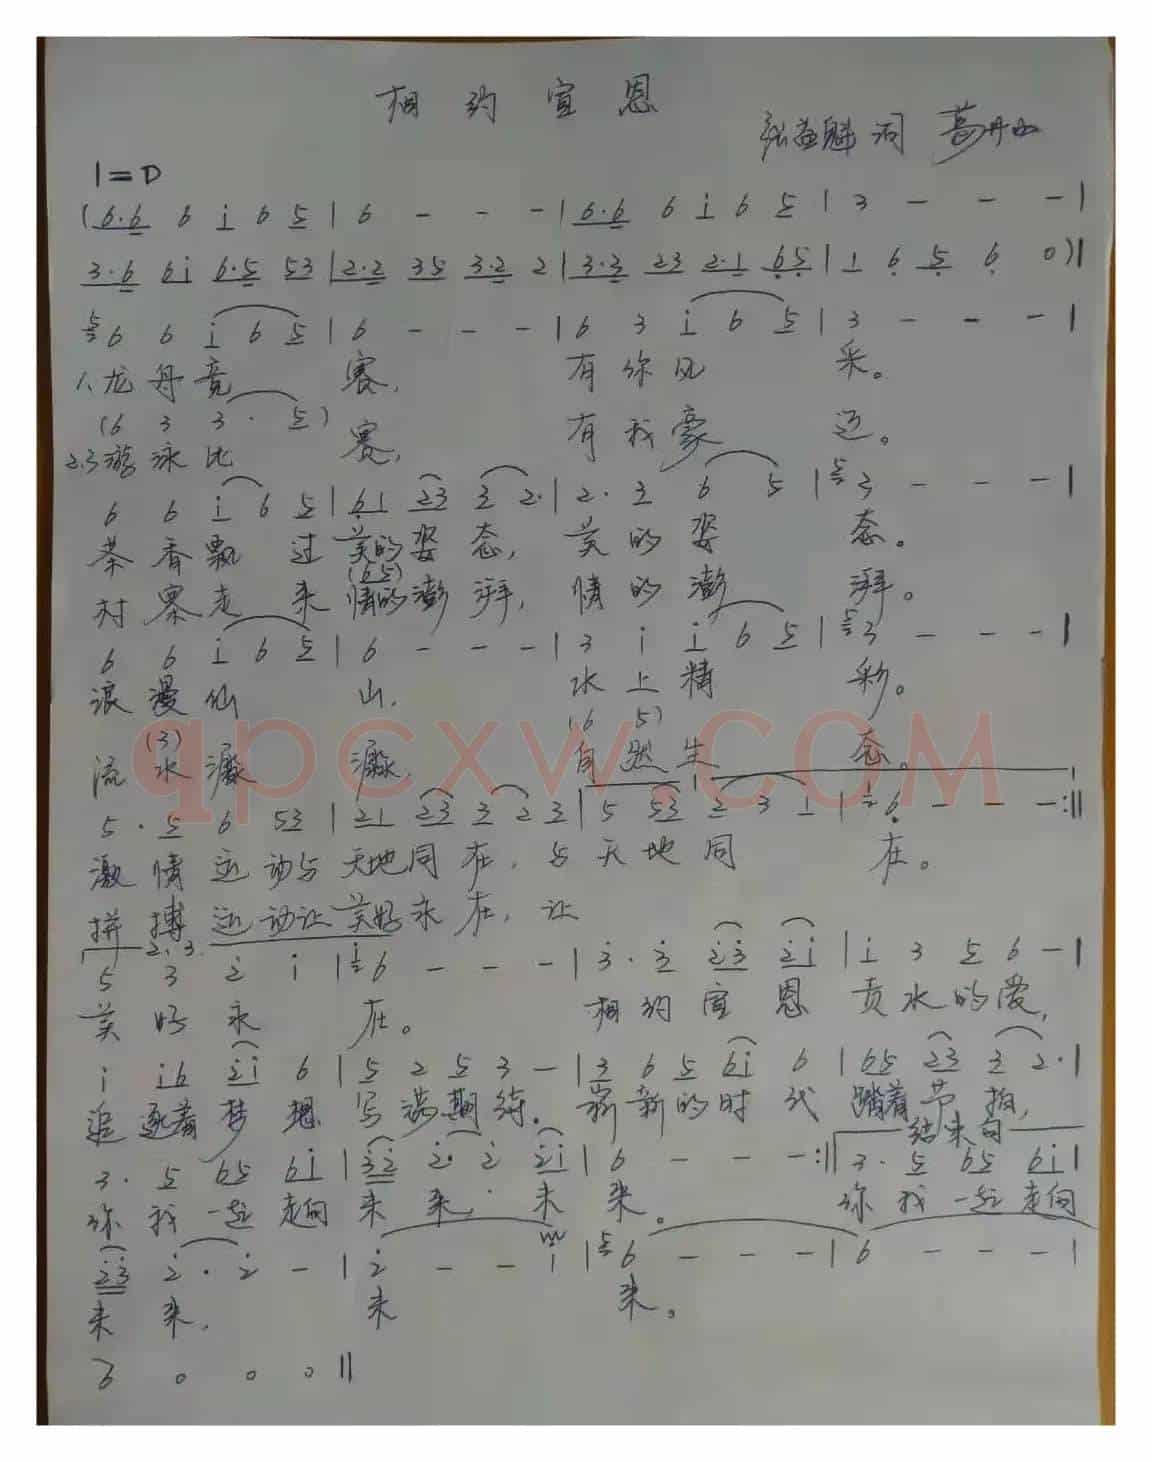 相约宣恩
张益魁词 葛丹山
1=D
(6·6 6 i 6 5 | 6 - - - | 6·6 6 i 6 5 | 3 - - - |
3·6 6i 6·5 53 | 2·2 35 3·2 2 | 3·3 23 2·1 65 | 1 6 5 6 0) |
5 6 6 i 6 5 | 6 - - - | 6 3 i 6 5 | 3 - - - |
1、龙舟竟 赛, 有你风 采。
(6 3 3 · 5)
2.3游泳比 赛, 有我豪 迈。
6 6 i 6 5 | 61 23 3 2· | 2· 3 6 5 | 5 3 - - - |
茶香飘 过美的姿态, 美的姿 态。
(65)
村寨走 来情的澎湃, 情的澎 湃。
6 6 i 6 5 | 6 - - - | 3 i i 6 5 | 5 3 - - - |
浪漫仙 山, 水上精 彩。
(3) (6 5)
流水潺 潺, 自然生 态。
5 · 5 6 53 | 21 23 3 2 3 | 5 53 2 3 1 | 1 6 - - - :||
激情运动与天地同在, 与天地同 在。
拼搏运动让美好永在, 让
2、3.
5 3 2 i | i 6 - - - | 3 · 3 23 2i | i 3 5 6 - |
美好永 在。 相约宣恩 贡水的爱,
i i6 2i 6 | 5 2 5 3 - | 3 6 5 6i 6 | 65 23 3 2· |
追逐着梦想 写满期待。 崭新的时代 踏着节拍,
结束句
3· 5 65 6i | 32 2· 2 2i | 6 - - - :|| 3· 5 65 6i |
你我一起走向 来来, 未来。 你我一起走向
23 2 · 2 - | 2 - - i | 5 6 - - - | 6 - - - |
未来, 未 来。
6 0 0 0 ||
qpcxw.COM